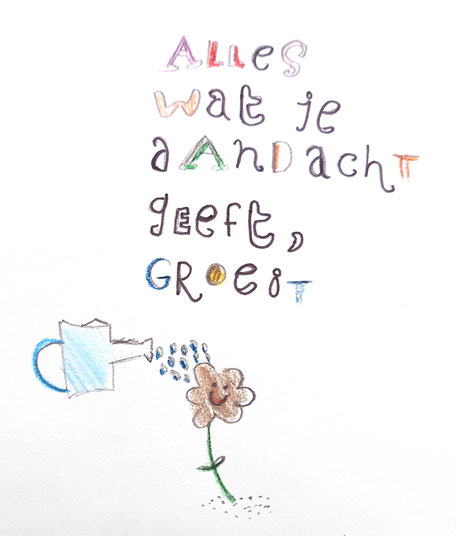 ALLeS
Wat je
aAnDachT
gEeft,
GROeiT